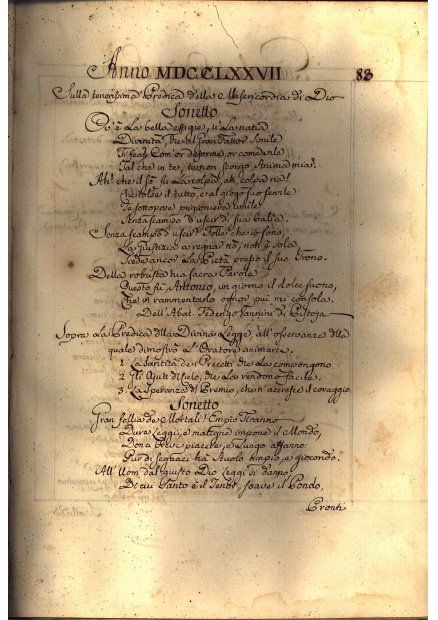 Anno MDCCLXXVII 83
Sulla tenerissima Predica della Misericordia di Dio
Sonetto
Ov'è La bella effigie, e La natia
Divinità, che al gran Fattor Simile
Ti feal Com'or deforme, or com'è vile
Tal che in te, to non scorgo Anima mia?
Ah! che il so fu La colpa, ah colpa ria!
che tolse il tutto, e al giogo suo servile
Ti sottopose prigioniera umile
Senza scampo d'uscir di sua balia.
Senza scampo d'uscir? Folle che io sono,
La giustizia a regnar no, non è sola,
Siede ancor La Pietà presso il suo Trono.
Della robusta tua sacra Parola
Questo fu, Antonio, un giorno il dolce suono,
Che in rammentarlo ognor più mi consola.
Dell'Abat. Federigo Vannini di Pistoja
Sopra La Predica della Divina Legge, all'osservanza della
quale dimostrò L'Oratore animare.
1 La Santità dei Precetti che La compongono.
2 Gli Ajuti di Cielo, che La rendono facile.
3 La Speranza di Premio, che n'accresce il coraggio
Sonetto
Gran follia de Mortali! Empio Tiranno
Dure Leggi, e maligne impone il Mondo,
Dona breve piacere, e Lungo affanno:
Pur di seguaci ha stuolo ampio, e giocondo.
All'Uom dal giusto Dio Leggi si danno
Di cui Santo è il Tenor, soave il Pondo,
Pronti